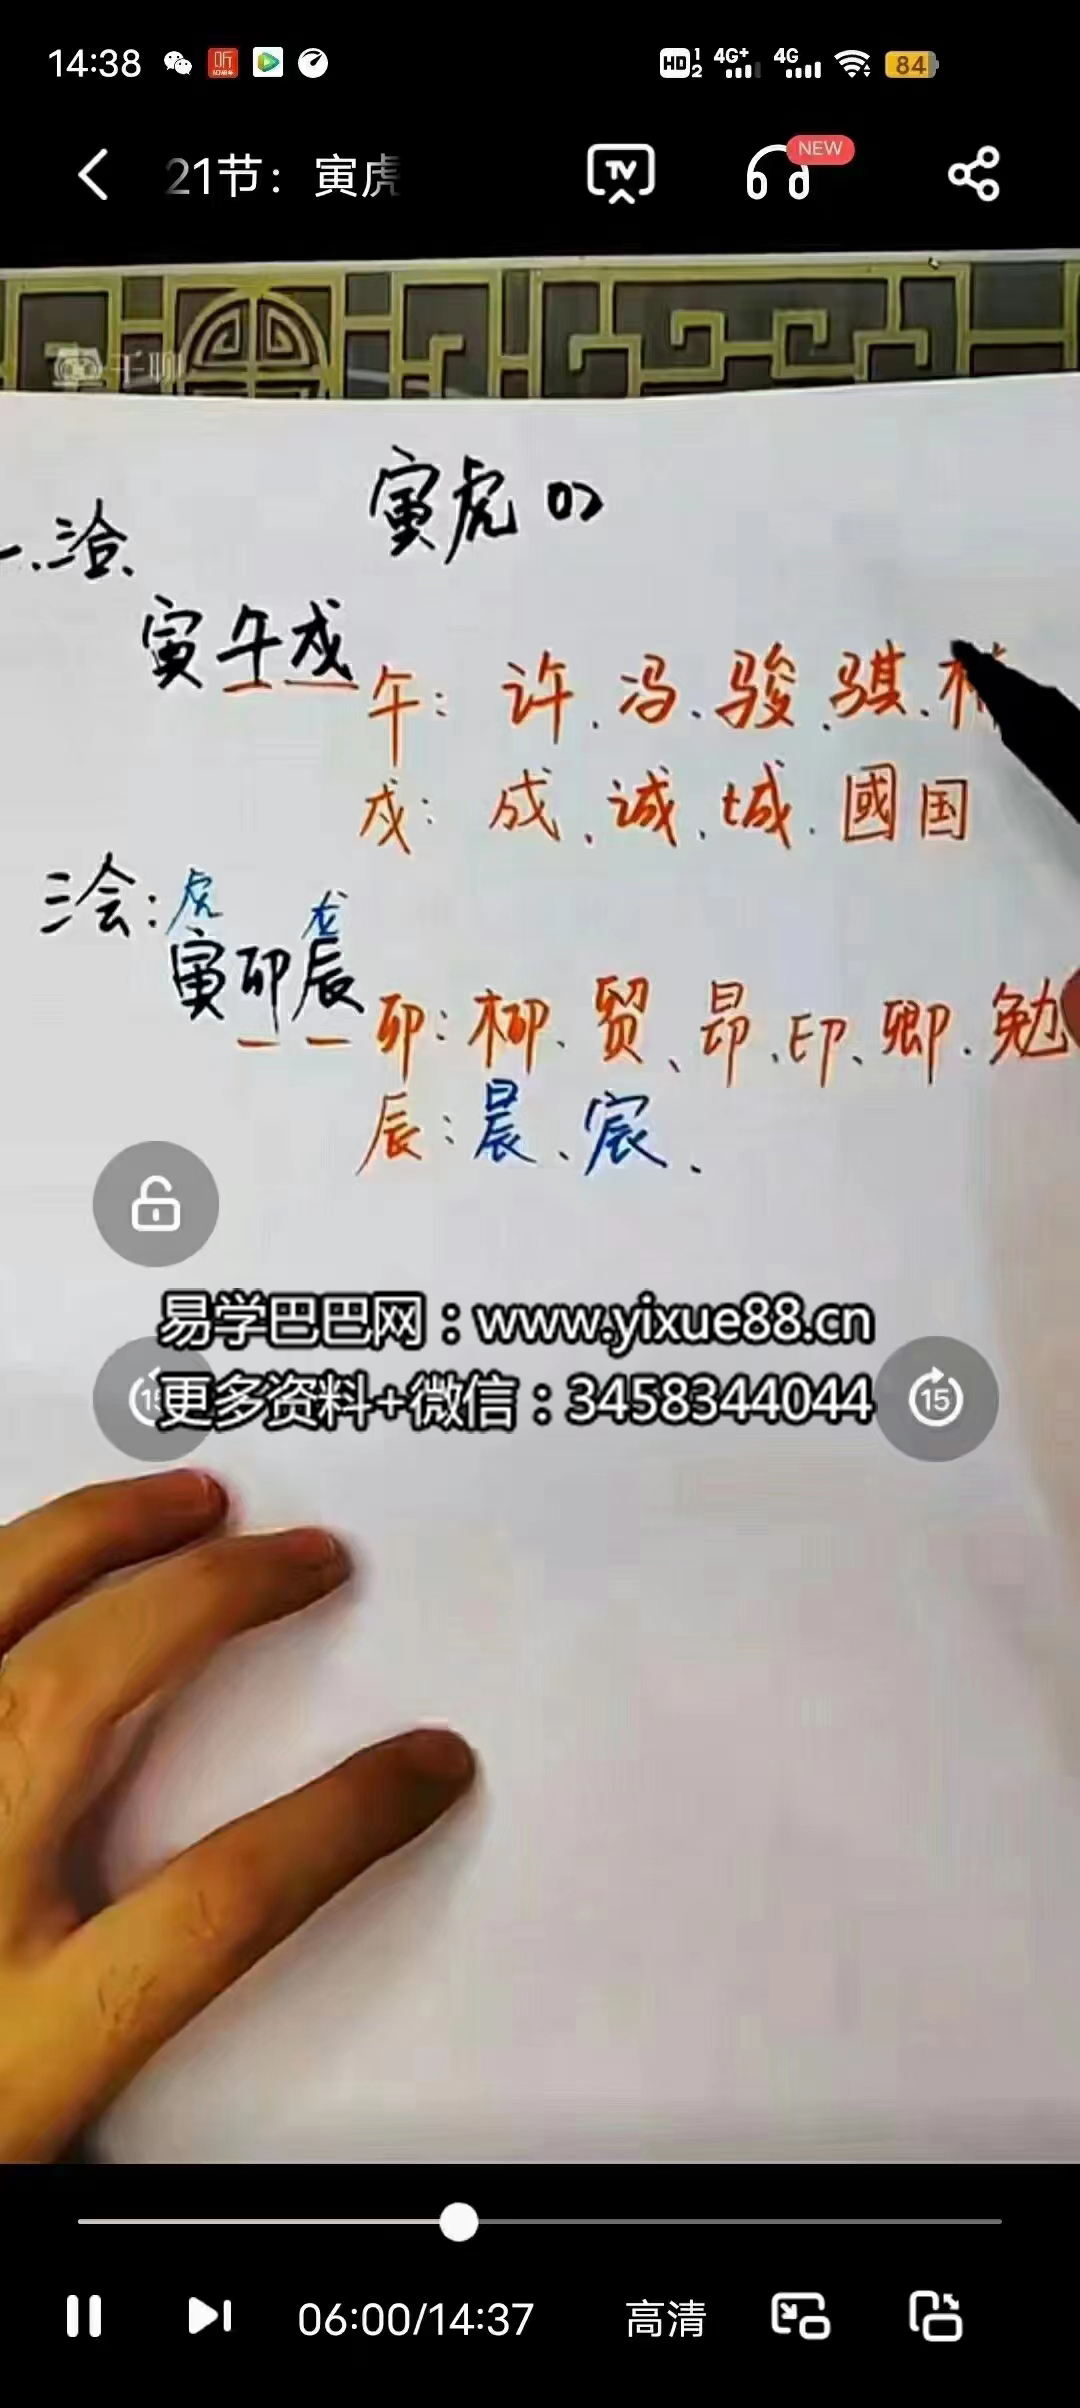 14:38 听 HD 1 2 4G+ 4G 84
21节：寅虎 TV NEW
千聊
寅虎 02
一、三合、
寅午戌
午：许、冯、骏、骐、
戌：成、诚、城、國国
三会：虎 龙
寅卯辰
卯：柳、贸、昂、印、卿、勉
辰：晨、宸、
易学巴巴网：www.yixue88.cn
15 更多资料+微信：3458344044 15
06:00/14:37 高清